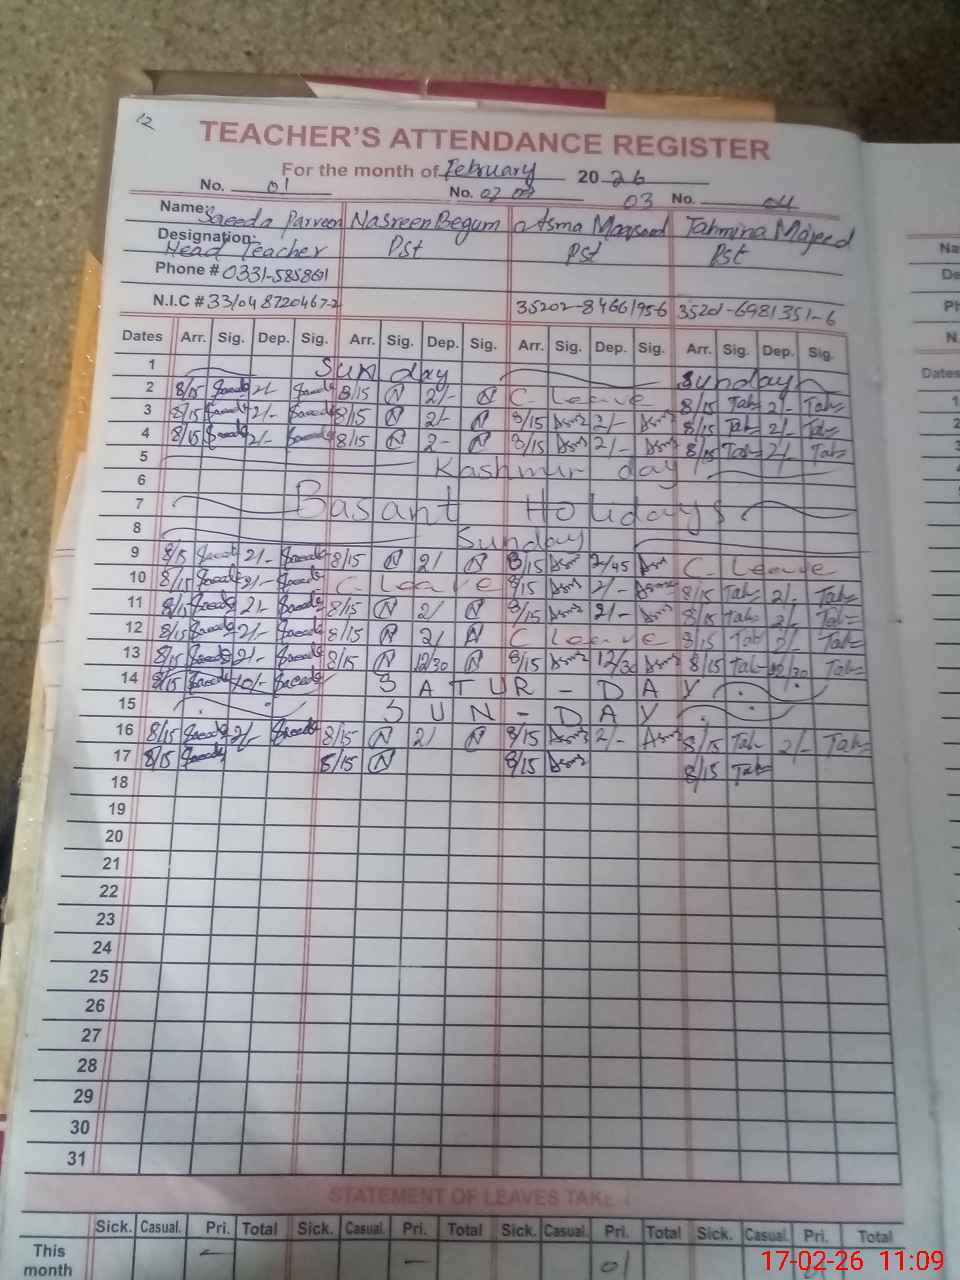 12
TEACHER'S ATTENDANCE REGISTER
For the month of February 2026
No. 01 No. 02 03 No. 04
Name: Saeeda Parveen Nasreen Begum Asma Maqsood Tahmina Majeed
Designation: Head Teacher Pst Pst Pst
Phone # 0331-585861
N.I.C # 33104 8720467-2 35202-8466195-6 35201-6981351-6
Dates Arr. Sig. Dep. Sig. Arr. Sig. Dep. Sig. Arr. Sig. Dep. Sig. Arr. Sig. Dep. Sig.
1 Sunday Sunday
2 8/15 Saeeda 2/- Saeeda 8/15 N 2/- N C. Leave 8/15 Tah 2/- Tah
3 8/15 Saeeda 2/- Saeeda 8/15 N 2/- N 8/15 Asma 2/- Asma 8/15 Tah 2/- Tah
4 8/15 Saeeda 2/- Saeeda 8/15 N 2- N 8/15 Asma 2/- Asma 8/15 Tah 2/- Tah
5 Kashmir day
6
7 Basant Holidays
8 Sunday
9 8/15 Saeeda 2/- Saeeda 8/15 N 2/ N 8/15 Asma 2/45 Asma C. Leave
10 8/15 Saeeda 2/- Saeeda C. Leave 8/15 Asma 2/- Asma 8/15 Tah 2/- Tah
11 8/15 Saeeda 2/- Saeeda 8/15 N 2/ N 8/15 Asma 2/- Asma 8/15 Tah 2/- Tah
12 8/15 Saeeda 2/- Saeeda 8/15 N 2/ N C Leave 8/15 Tah 2/- Tah
13 8/15 Saeeda 2/- Saeeda 8/15 N 12/30 N 8/15 Asma 12/30 Asma 8/15 Tah 12/30 Tah
14 8/15 Saeeda 10/- Saeeda SATUR-DAY
15 SUN-DAY
16 8/15 Saeeda 2/- Saeeda 8/15 N 2/ N 8/15 Asma 2/- Asma 8/15 Tah 2/- Tah
17 8/15 Saeeda 8/15 N 8/15 Asma 8/15 Tah
18
19
20
21
22
23
24
25
26
27
28
29
30
31
STATEMENT OF LEAVES TAKE
Sick. Casual. Pri. Total Sick. Casual. Pri. Total Sick. Casual. Pri. Total Sick. Casual. Pri. Total
This month - - 01
17-02-26 11:09
Na
De
Ph
N.
Dates